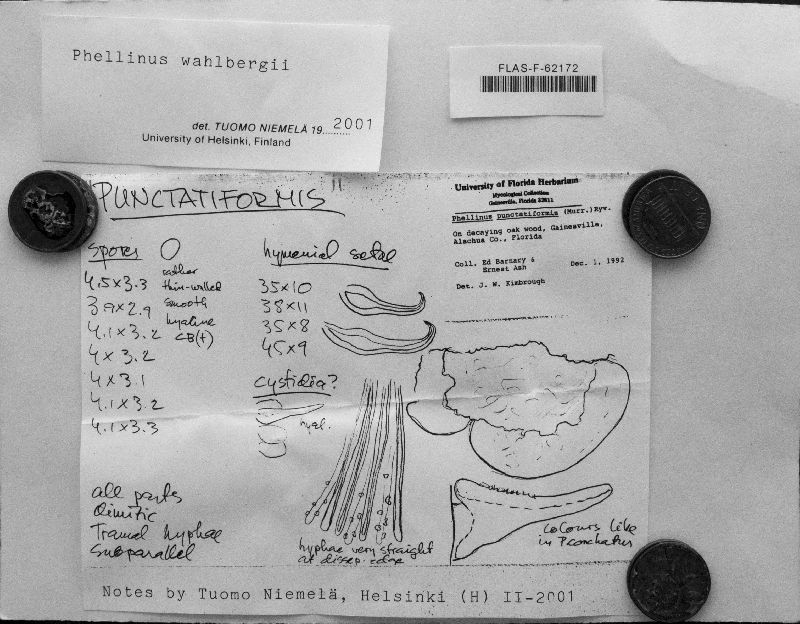 Phellinus wahlbergii
det. TUOMO NIEMELÄ 19........ 2001
University of Helsinki, Finland
FLAS-F-62172
"PUNCTATIFORMIS"
University of Florida Herbarium
Mycological Collection
Gainesville, Florida 32611
Phellinus punctatiformis (Murr.) Ryv.
On decaying oak wood, Gainesville,
Alachua Co., Florida
Coll. Ed Barnary &
Ernest Ash
Dec. 1, 1992
Det. J. W. Kimbrough
spores
rather
thin-walled
smooth
hyaline
CB(+)
4.5×3.3
3.9×2.9
4.1×3.2
4×3.2
4×3.1
4.1×3.2
4.1×3.3
hymenial setae
35×10
38×11
35×8
45×9
cystidia?
hyal.
all parts
dimitic
Tramal hyphae
subparallel
hyphae very straight
at dissep. edge
colours like
in P. conchatus
Notes by Tuomo Niemelä, Helsinki (H) II-2001